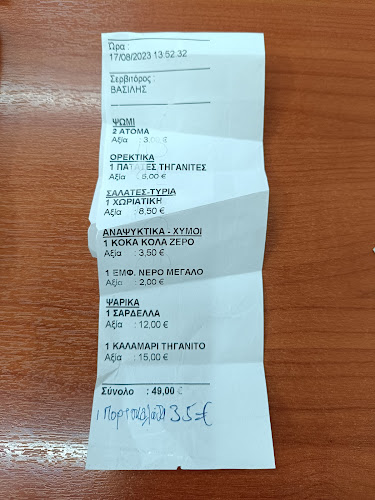 Ώρα :
17/08/2023 13:52:32
Σερβιτόρος :
ΒΑΣΙΛΗΣ
ΨΩΜΙ
2 ΑΤΟΜΑ
Αξία : 3,00 €
ΟΡΕΚΤΙΚΑ
1 ΠΑΤΑΤΕΣ ΤΗΓΑΝΙΤΕΣ
Αξία : 5,00 €
ΣΑΛΑΤΕΣ-ΤΥΡΙΑ
1 ΧΩΡΙΑΤΙΚΗ
Αξία : 8,50 €
ΑΝΑΨΥΚΤΙΚΑ - ΧΥΜΟΙ
1 ΚΟΚΑ ΚΟΛΑ ΖΕΡΟ
Αξία : 3,50 €
1 ΕΜΦ. ΝΕΡΟ ΜΕΓΑΛΟ
Αξία : 2,00 €
ΨΑΡΙΚΑ
1 ΣΑΡΔΕΛΛΑ
Αξία : 12,00 €
1 ΚΑΛΑΜΑΡΙ ΤΗΓΑΝΙΤΟ
Αξία : 15,00 €
Σύνολο : 49,00 €
1 35€